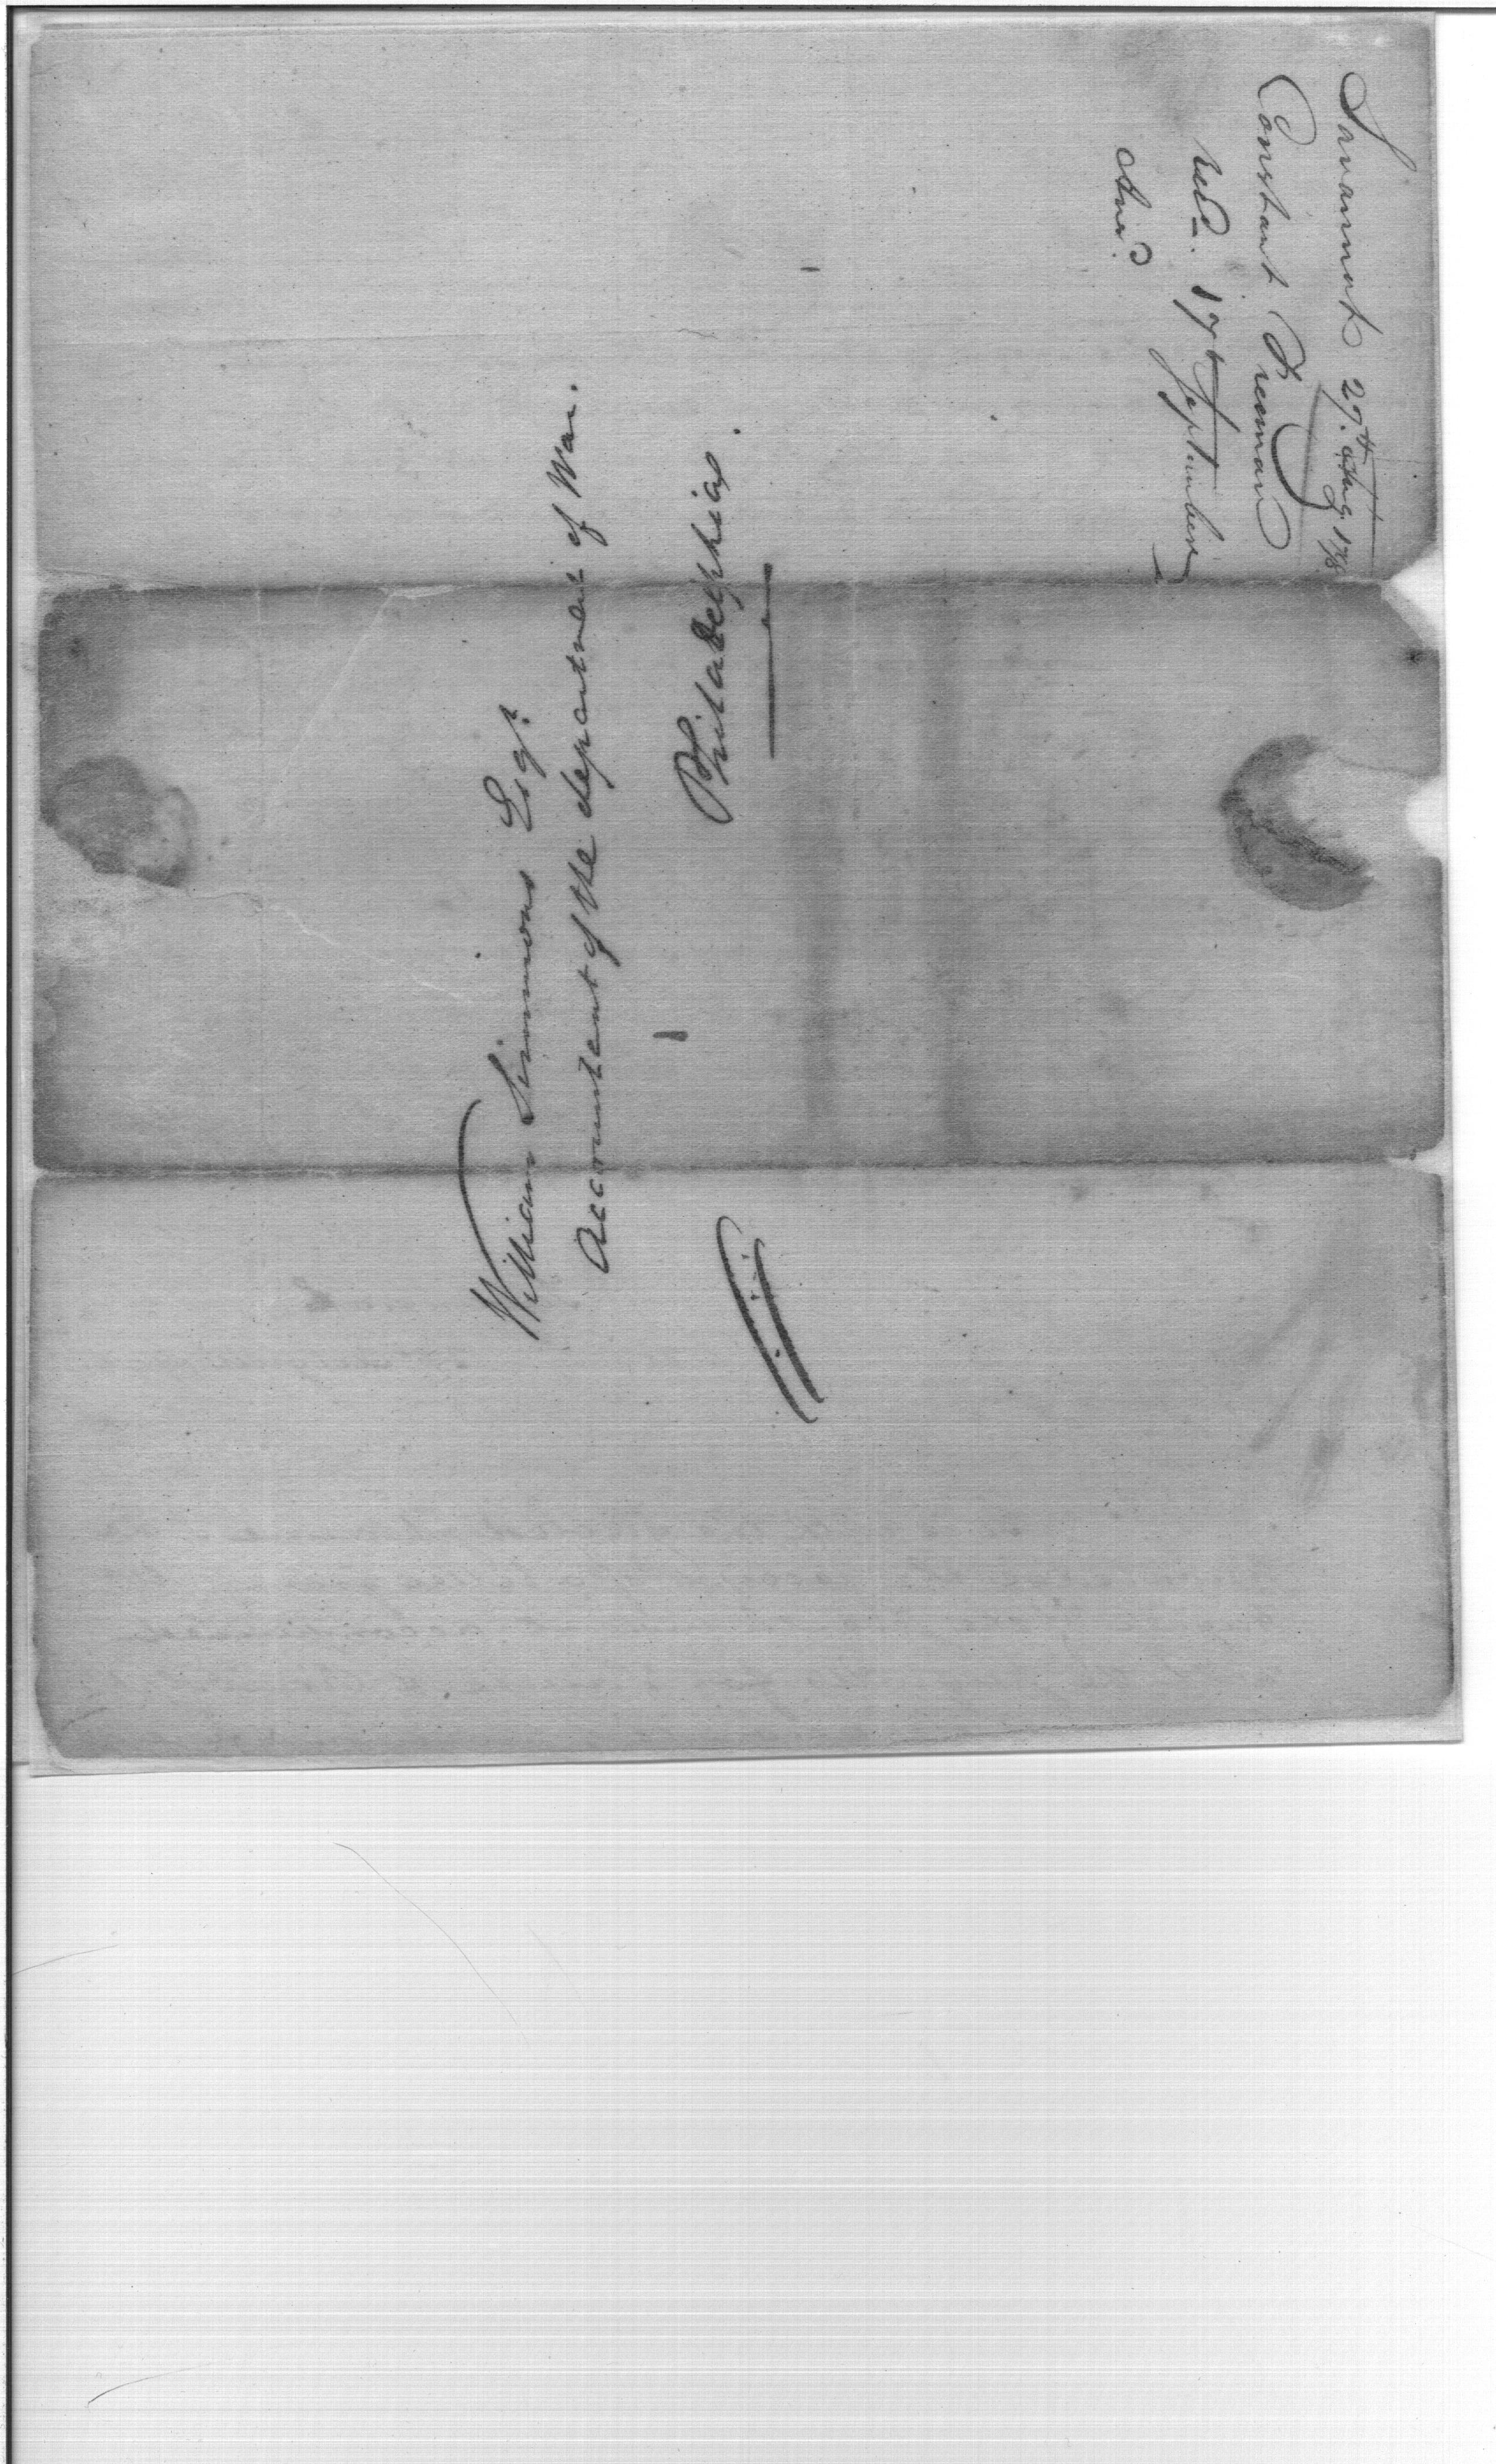 Savannah 29th Aug 1798
Constant Freeman
Recd. 17th September
Ansd.
William Simmons Esqr.
Accountant of the department of War.
Philadelphia.